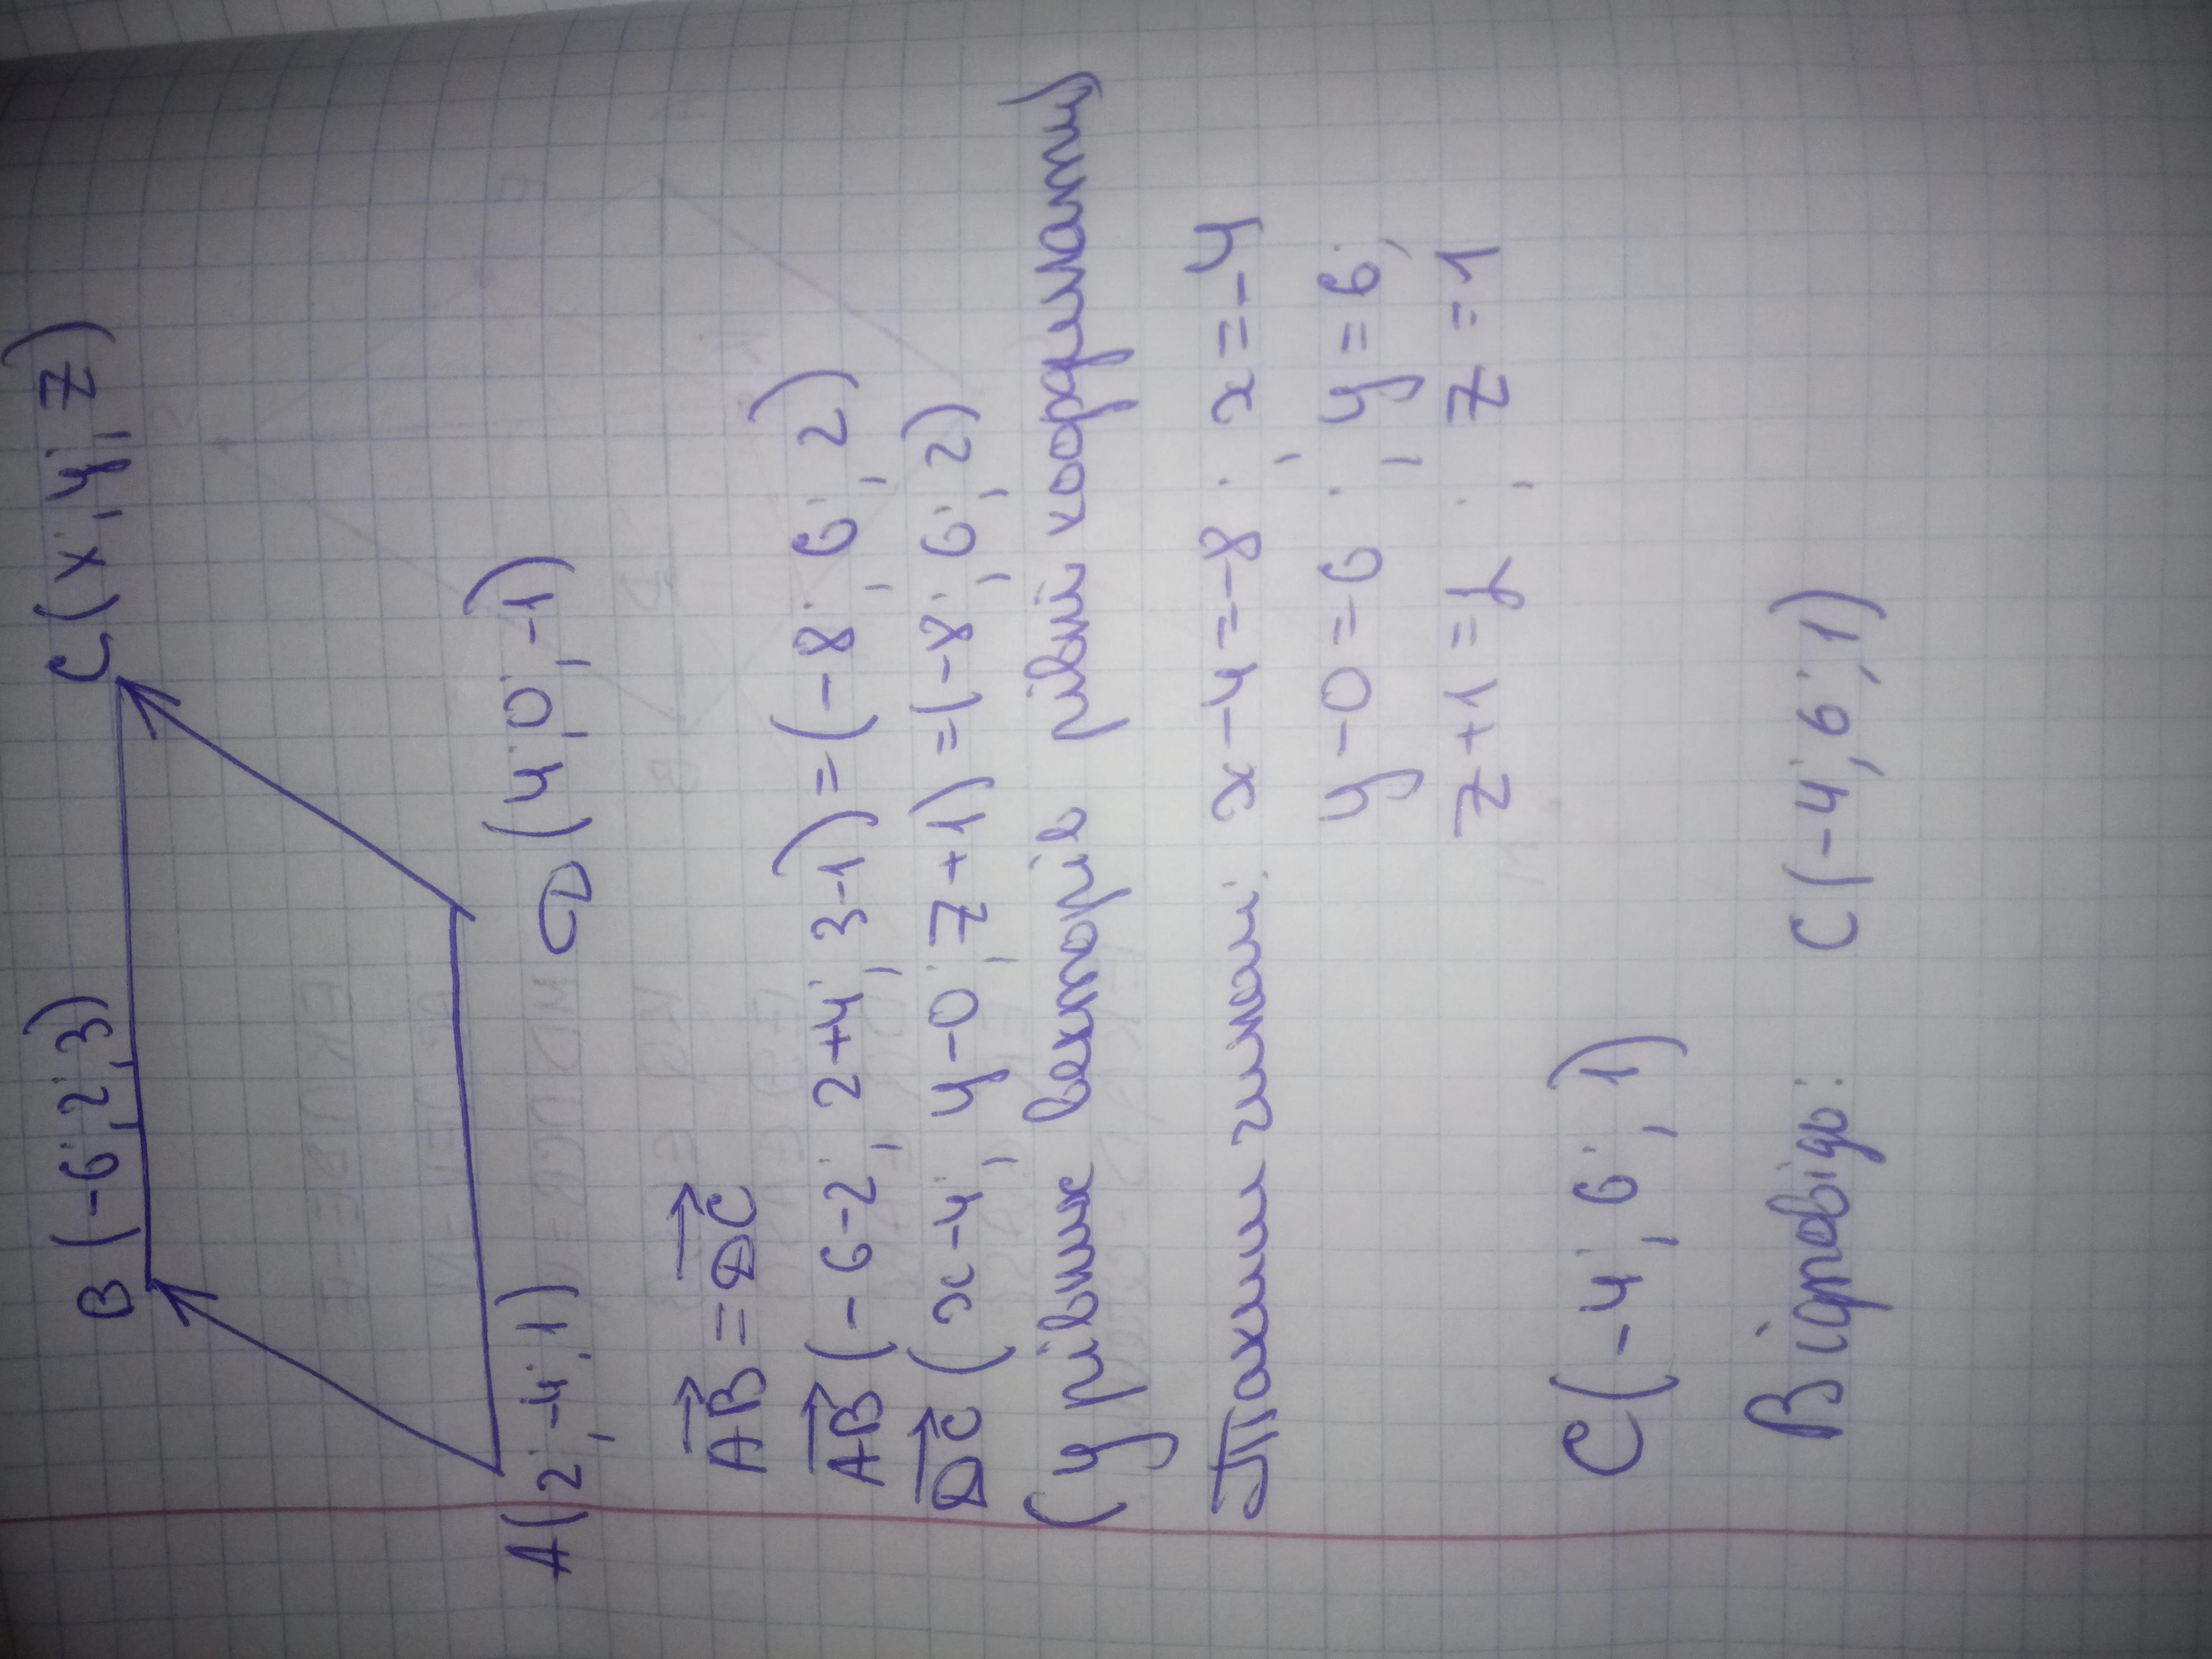 B (-6; 2; 3)
C (x; y; z)
A (2; -4; 1)
D (4; 0; -1)
AB = DC
AB (-6-2; 2+4; 3-1) = (-8; 6; 2)
DC (x-4; y-0; z+1) = (-8; 6; 2)
(у рівних векторів рівні координати)
Таким чином: x-4=-8; x=-4
y-0=6; y=6;
z+1=2; z=1
C(-4; 6; 1)
Відповідь: C(-4; 6; 1)